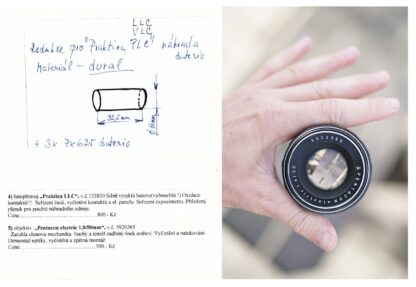 LLC
VLC
Redukce pro "Praktica PLC" náhrada
baterie
Materiál - dural
+ 3x 7x625 baterie
4) fotopřístroj „Praktica LLC“, v.č. 133830 Silně vyteklá baterie(vybouchlá !) Oxidace
kontaktů!! Seřízení časů, vyčištění kontaktů a el. panelu. Seřízení expozimetru. Přiložený
plánek pro použití náhradního zdroje.
Cena 800.- Kč
5) objektiv „Pentacon electric 1.8/50mm“, v.č. 5920365.
Zatuhlá clonová mechanika. Suchý a téměř zadřený šnek ostření. Vyčištění a natukování.
Demontáž optiky, vyčištění a zpětná montáž
Cena 500.- Kč
PENTACON